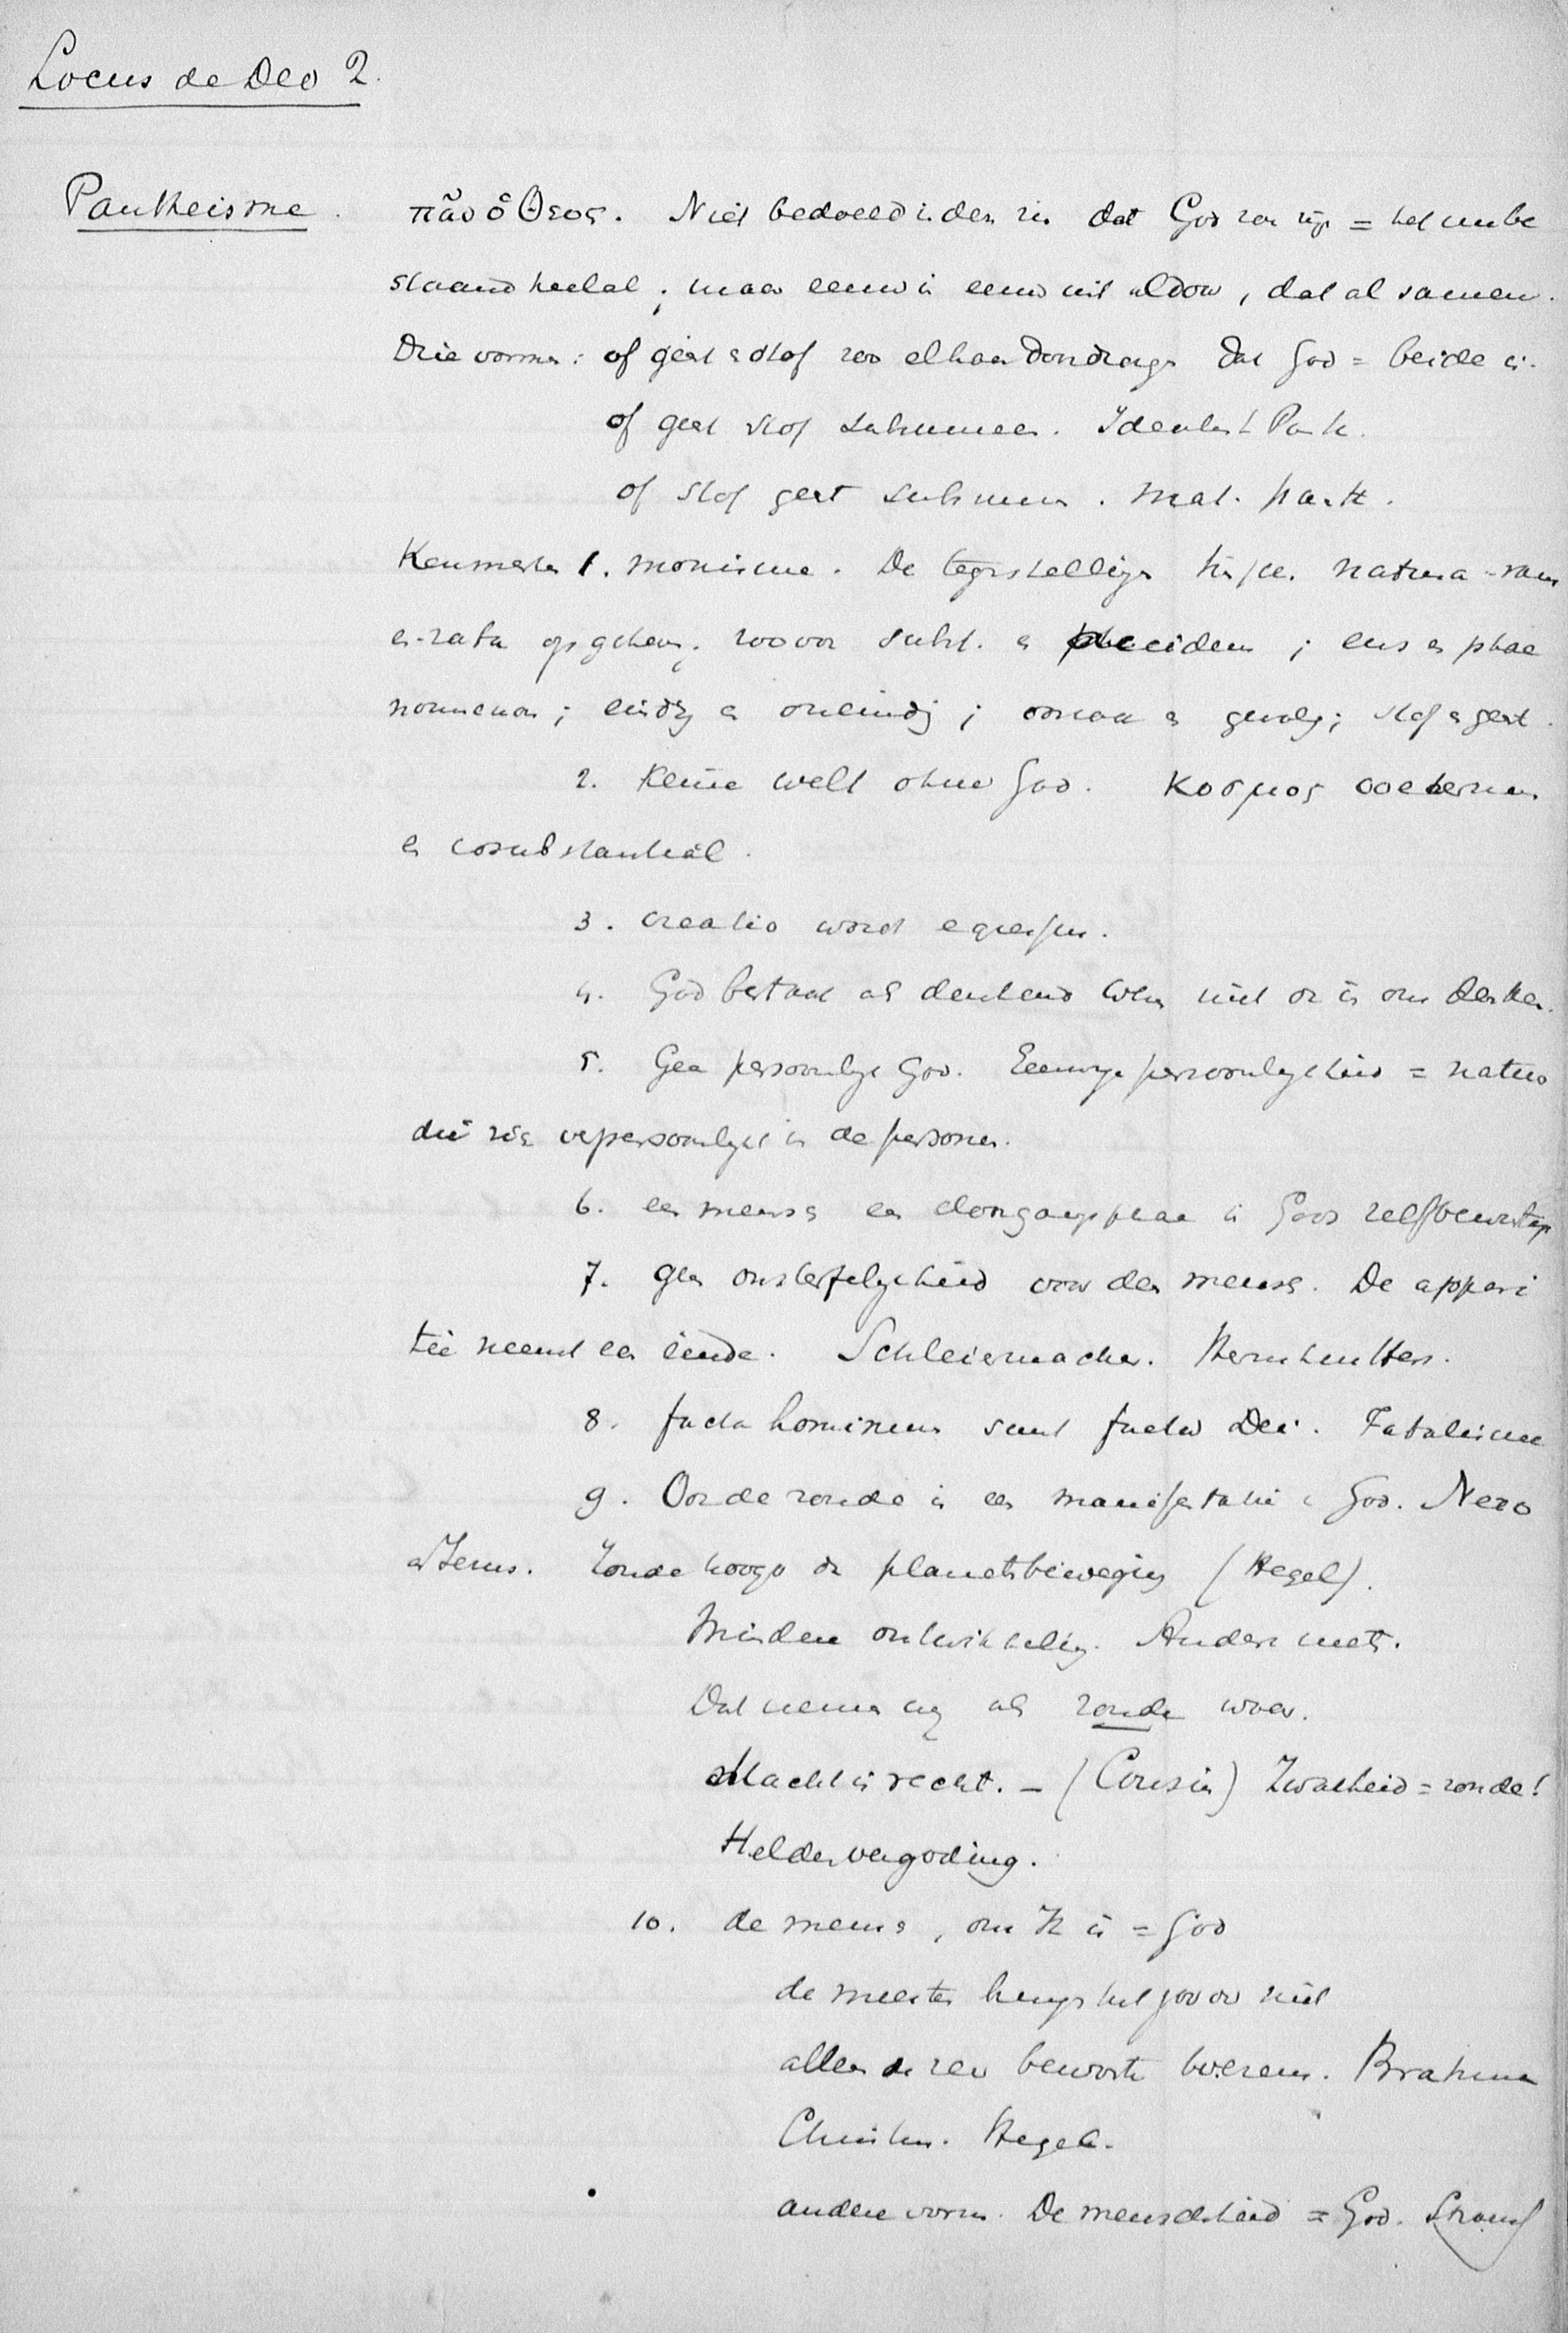 Locus de Deo 2.
Pantheisme. πᾶν ὁ Θεος. Niet bedoeld in den zin dat God zou zijn = het nu be
staand heelal; maar eeuw in eeuw uit aldoor, dat al samen.
Drie vormen: of geest en stof zoo elkaar doordringen dat God = beide is.
of geest stof Idealist Panth.
of stof geest . Mat. panth.
Kenmerken 1. monisme. De tegenstellingen tusschen natura -rans
en -rata opgeheven; zoo ook subst. en accidens; ens en phae
nomenon; eindig en oneindig; oorzaak en gevolg; stof en geest.
2. Keine Welt ohne God. Κοσμος coaeternus
en cosubstantiäl.
3. creatio wordt egressus.
4. God bestaat als denkend wezen niet dan in ons denken.
5. Geen persoonlijk God. Eeuwige persoonlijkheid = natuur
die zich verpersoonlijkt in de personen.
6. een mensch een doorgangsphase in Gods zelfbewustzijn
7. geen onsterfelijkheid voor den mensch. De appari
tie neemt een einde. Schleiermacher. Hernhutters.
8. facta hominum sunt facta Dei. Fatalisme
9. Ook de zonde is een manifestatie v God. Nero
en Jezus. Zonde hooger dan planeetsbeweging (Hegel).
Mindere ontwikkeling. Anders niets.
Dat nemen wij als zonde waar.
Macht is recht. – (Cousin) Zwakheid = zonde!
Heldenvergoding.
10. de mensch, ons Ik is = God
de meesten brengen het zoover niet
alleen de zeer bewuste wezens. Brahma
Christus. Hegel.
andere vorm. De menschheid = God. Strausz